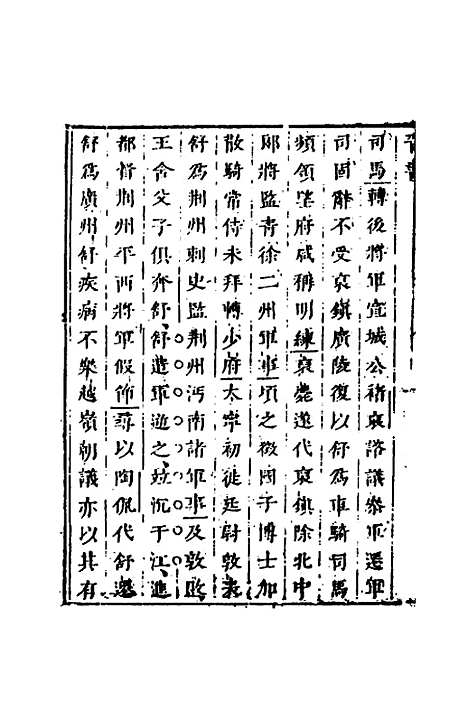 司馬轉後將軍宣城公裒諮議參軍遷軍
司固辭不受裒鎮廣陵復以舒爲車騎司馬
頻領望府咸稱明練裒薨遂代裒鎮除北中
郎將監青徐二州軍事頃之徵國子博士加
散騎常侍未拜轉少府太寧初徙廷尉敦表
舒爲荆州刺史監荆州沔南諸軍事及敦敗
王含父子俱奔舒舒遣軍逆之竝沉于江進
都督荆州平西將軍假節尋以陶侃代舒遷
舒爲廣州舒疾病不樂越嶺朝議亦以其有